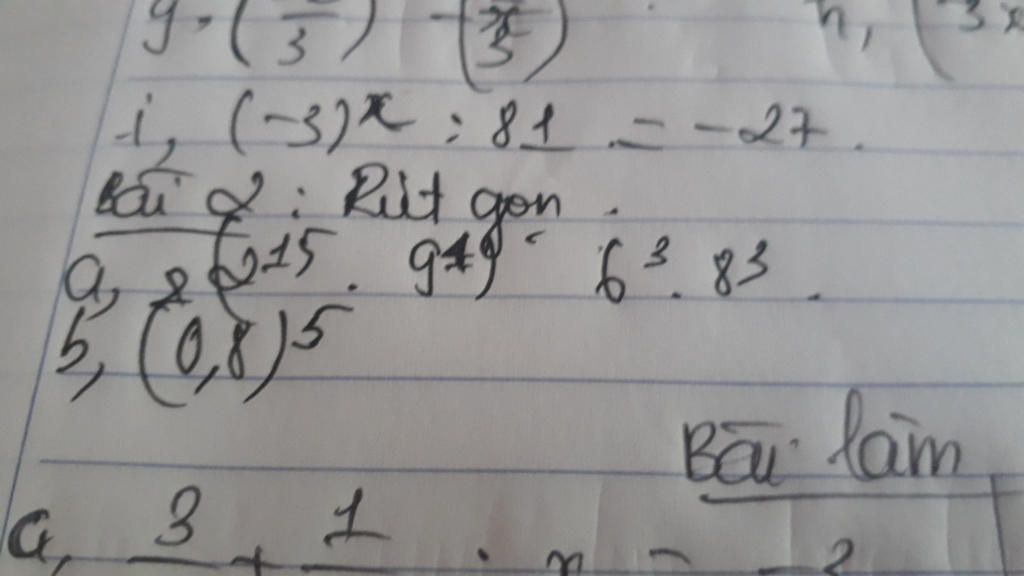 g. (/3) - (x/3) h, (3x
i, (-3)^x : 81 = -27.
Bài 2 : Rút gọn.
a, (2^15 . 9 6^3 . 8^3 .
b, (0,8)^5
Bài làm
a, 3 + 1 : x = -2